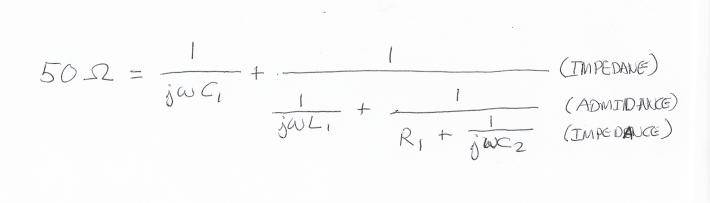 50 Ω = 1/(jωC₁) + 1/(1/(jωL₁) + 1/(R₁ + 1/(jωC₂))) (IMPEDANE)
(ADMIDANCE)
(IMPEDANCE)